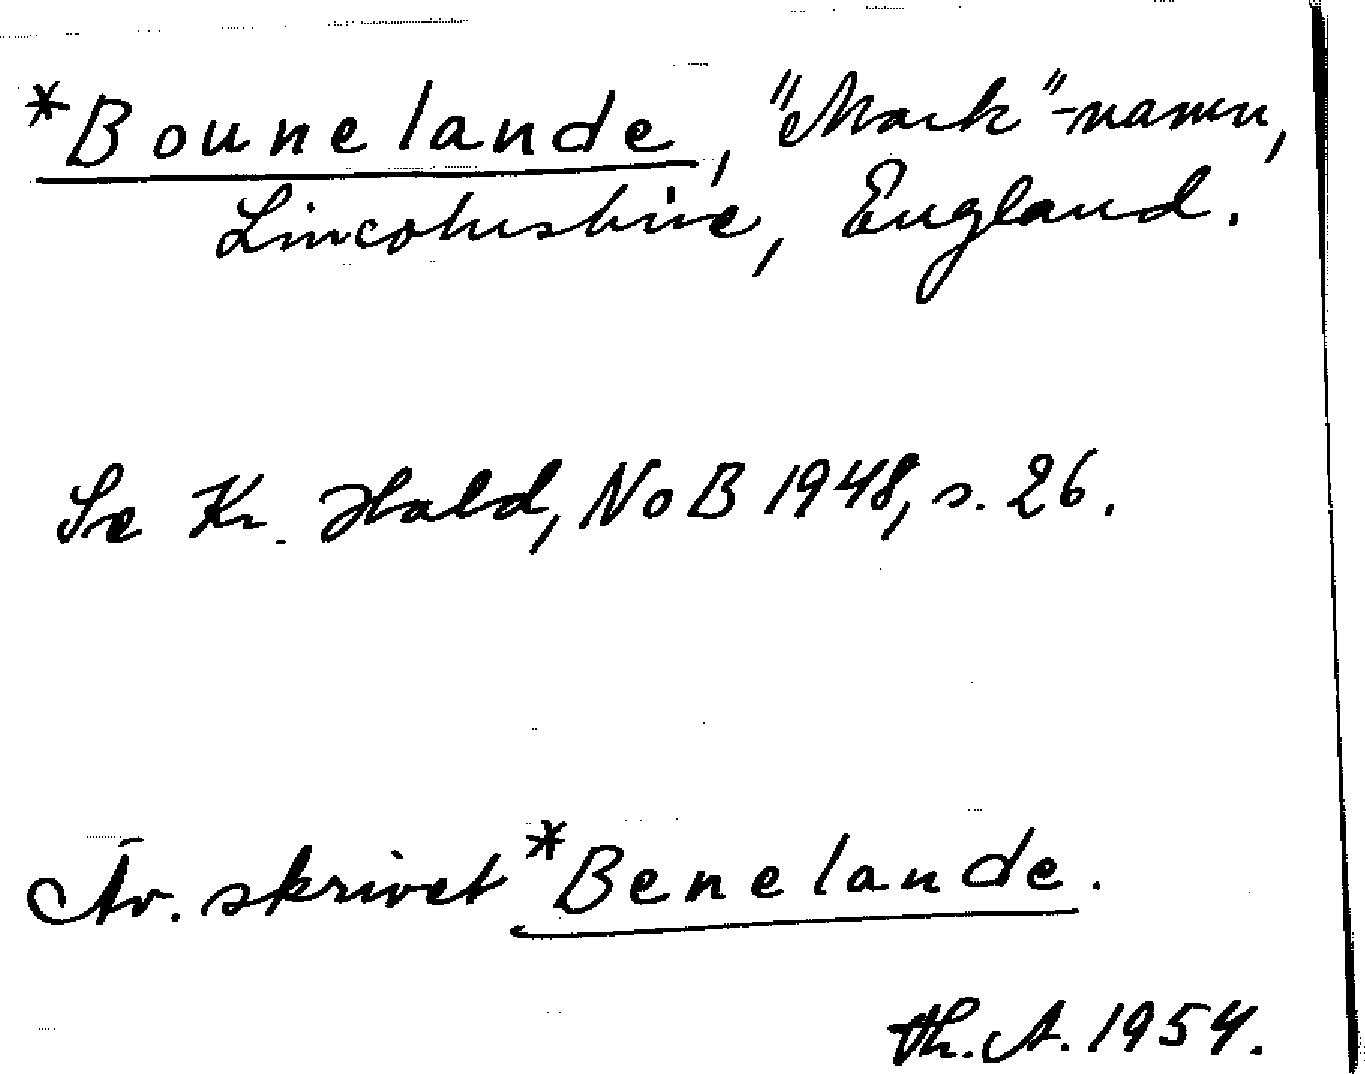 *Bounelande, "Mark"-namn,
Lincolnshire, England.
Se Kr. Hald, NoB 1948, s. 26.
Äv. skrivet *Benelande.
Th. A. 1954.